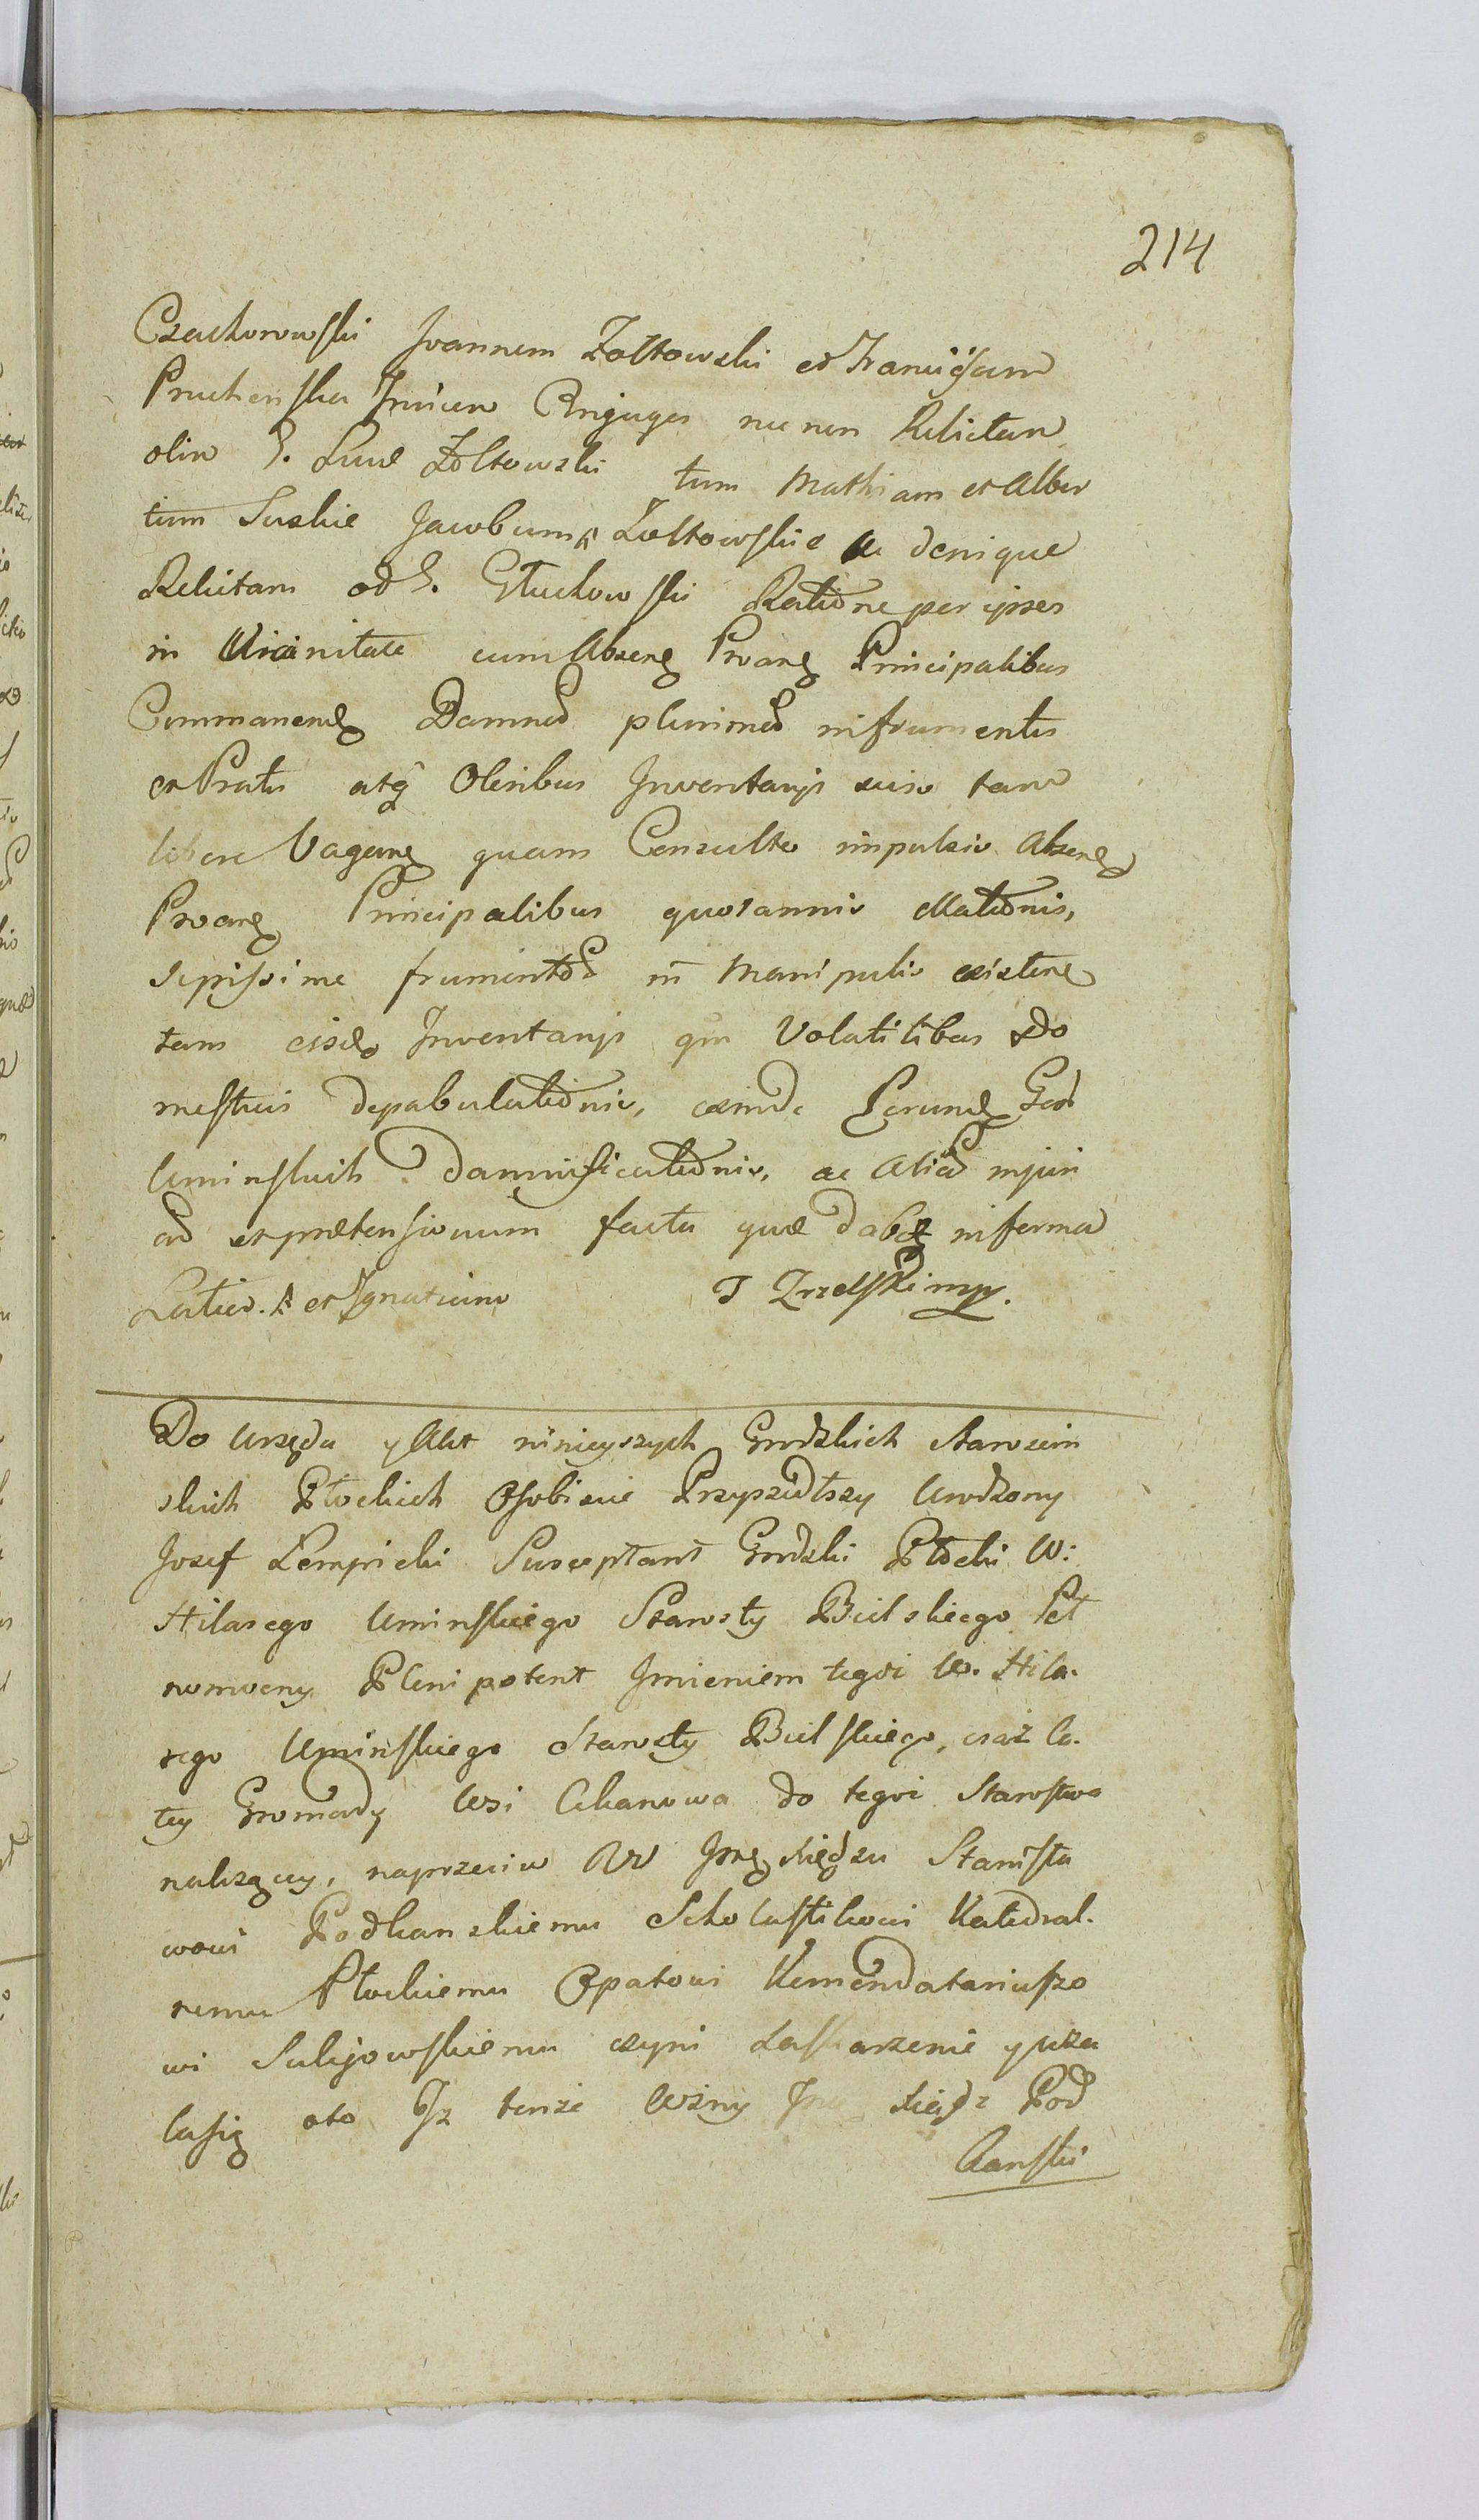 214
Czachorowski Joannem Zołtowski et Franciscam
Pruchenska Invicem Conjuges nec non Relictam
olim G. Lucæ Zołtowski tum Mathiam et Alber
tum Suskie Jacobum Zołtowskie ac denique
Relictam od G. Głuchowski Ratione per ipsos
in Vicinitate cum Absenę Proanę Principalibus
Commanenę Damnod plurimod in frumentis
et Pratis atq Oleribus Inventarijs suis tam
libere Vaganę quam Consulto impulsis Absenę
Proanę Principalibus quotannis Mationis,
sepissime frumentod in Manipulis existenę
tam eisdę Inventarijs qm Volatilibus Do
mesticis depabulationis, exinde Gerunę God
Uminskich damnificationis, ac aliad injuri
ad et prætensionum facta quæ dabę in forma
Latius. et Ignatium J Zrzelski mp.
Do Urzędu y Akt ninieyszych Grodzkich Starościn
skich Płockich Osobiscie Przyszedłszy Urodzony
Josef Lempicki Susceptant Grodzki Płocki W:
Hilarego Uminskiego Starosty Bielskiego Peł
nomocny Plenipotent Jmieniem tegoż W. Hila.
rego Uminskiego Starosty Bielskiego, oraż Ca.
łey Gromady Wsi Cikanowa do tegoż Starostwa
nalezący, naprzeciw W Jmę Xiędzu Stanisła
wowi Podkanskiemu Scholastikowi Katedral.
nemu Płockiemu Opatowi Komendatariuszo
wi Sulejowskiemu czyni Zaskarzenie y uza
lasię oto Jż tenże Wżny Jmę Xiądz Pod
kanski